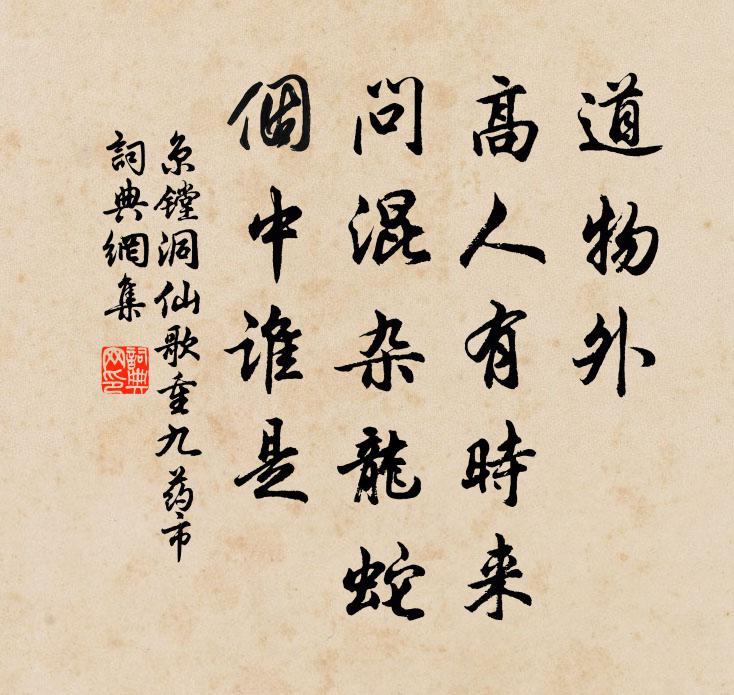 道物外
高人有時来
問混杂龍蛇
個中谁是
京鏜洞仙歌重九药市
詞典網集
詞典網印